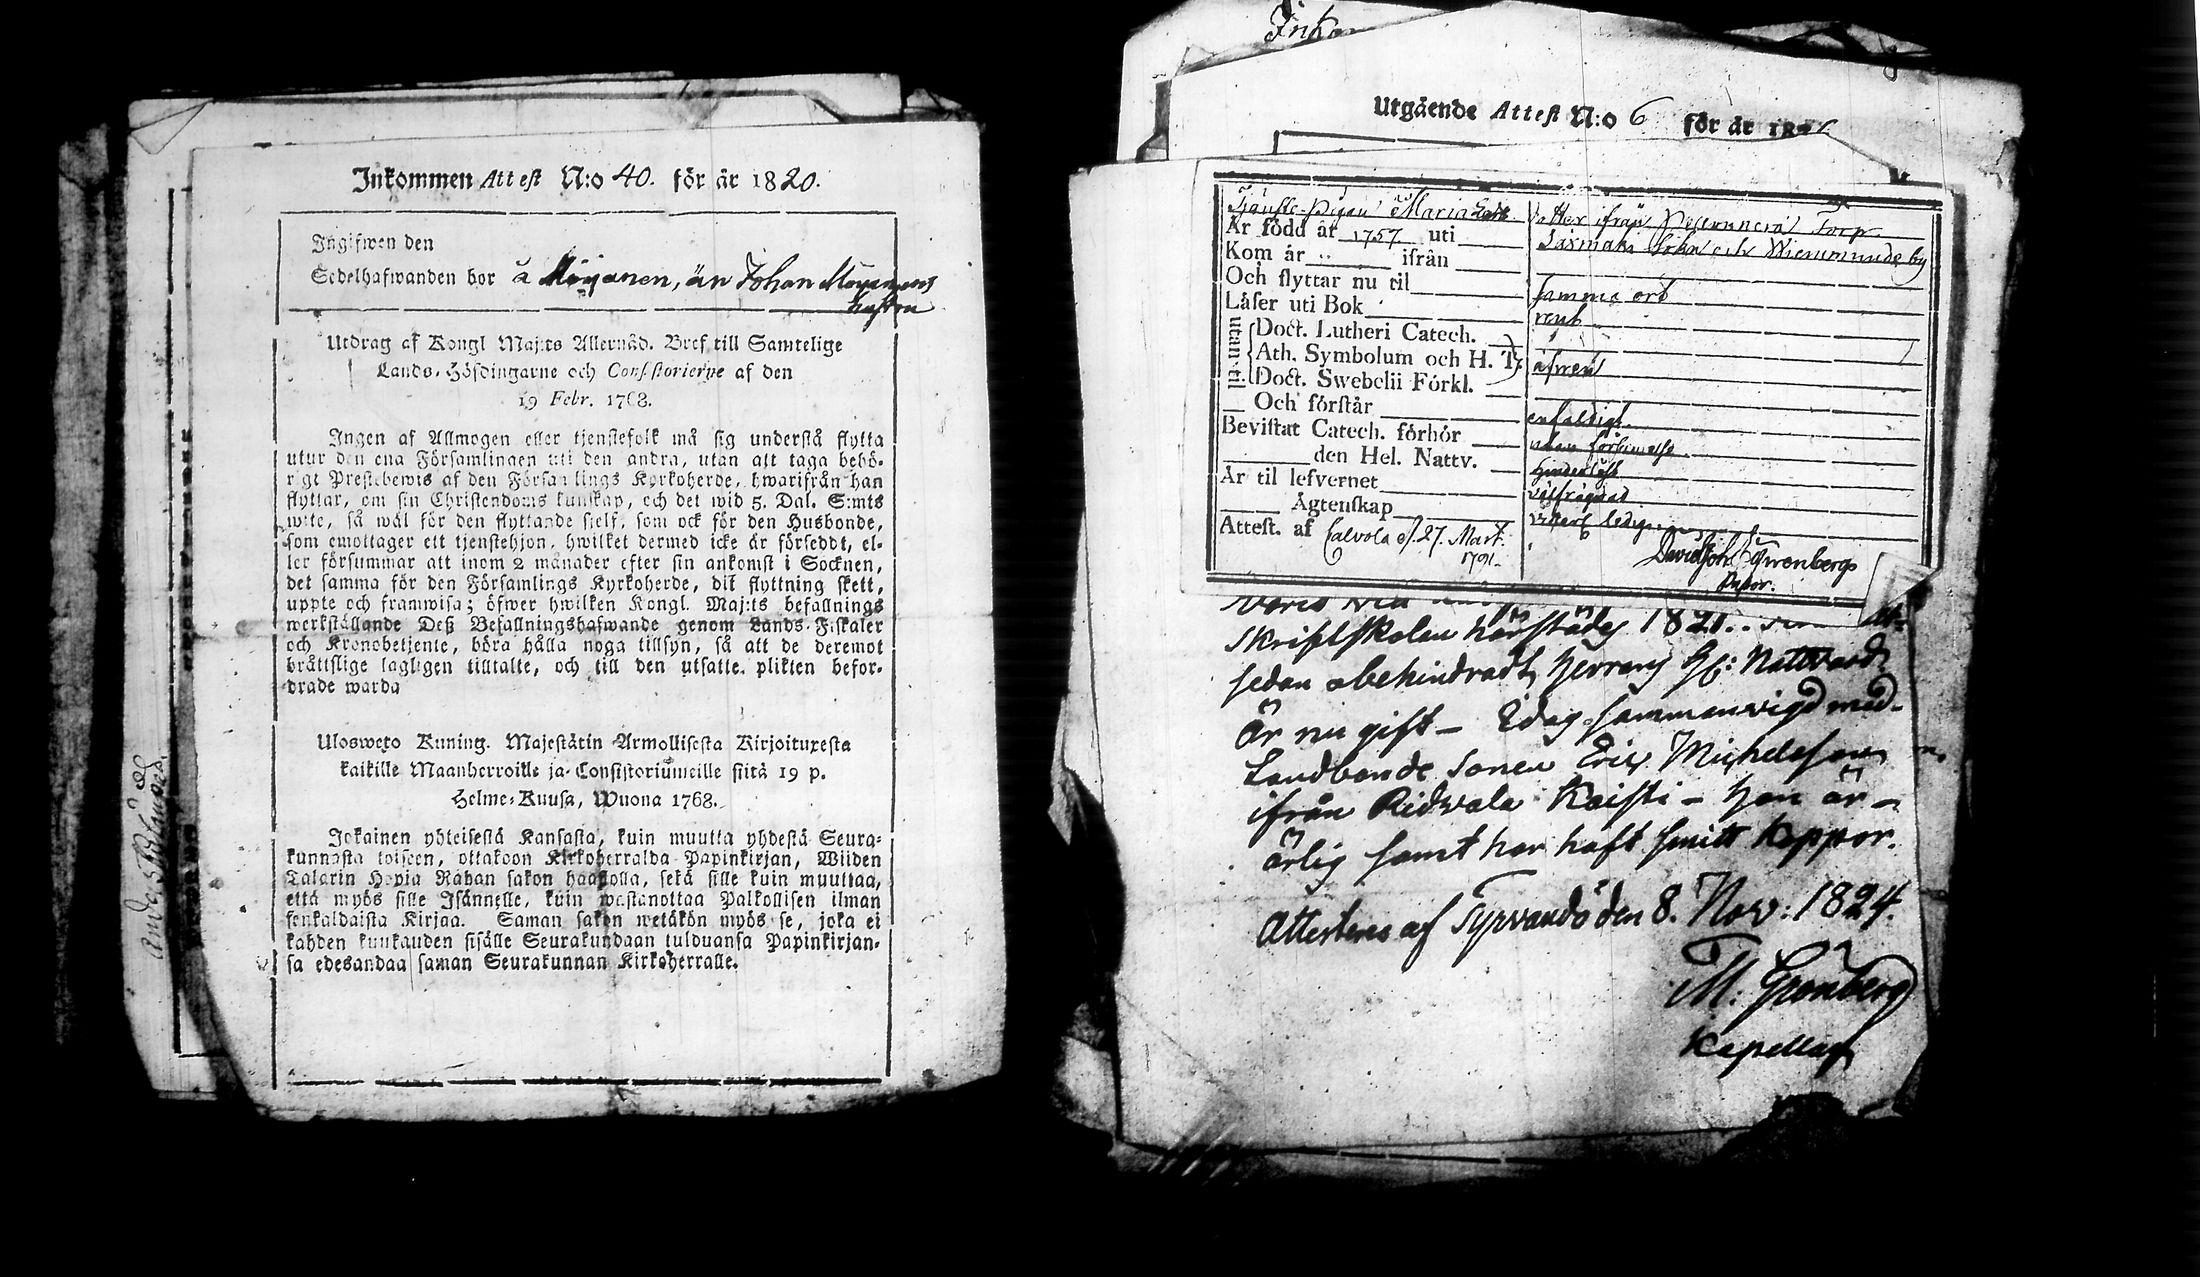 Inkommen Attest N:o 40. för år 1820.
Ingifwen den
Sedelhafwanden bor å Möyanen, än Johan Moyanens
hustru
Utdrag af Kongl Maj:ts Allernåd. Bref till Samtelige
Lands-Höfdingarne och Consistorierne af den
19 Febr. 1768.
Ingen af Allmogen eller tjenstefolk må sig understå flytta
utur den ena Församlingen uti den andra, utan att taga behö-
rigt Prestebewis af den Församlings Kyrkoherde, hwarifrån han
flyttar, om sin Christendoms kunskap, och det wid 5. Dal. S:mts
wite, så wäl för den flyttande sielf, som ock för den Husbonde,
som emottager ett tjenstehjon, hwilket dermed icke är förseddt, el-
ler försummar att inom 2 månader efter sin ankomst i Socknen,
det samma för den Församlings Kyrkoherde, dit flyttning skett,
uppte och framwisa; öfwer hwilken Kongl. Maj:ts befallnings
werkställande Deß Befallningshafwande genom Lands-Fiskaler
och Kronobetjente, böra hålla noga tillsyn, så att de deremot
bråttslige lagligen tilltalte, och till den utsatte plikten befor-
drade warda
Ulosweto Kuning. Majestätin Armollisesta Kirjoituxesta
kaikille Maanherroille ja Consistoriumeille siitä 19 p.
Helme-Kuusa, Wuona 1768.
Jokainen yhteisestä Kansasta, kuin muutta yhdestä Seura-
kunnasta toiseen, ottakoon Kirkoherralda Papinkirjan, Wiiden
Talarin Hopia Rahan sakon haastolla, sekä sille kuin muuttaa,
että myös sille Isännelle, kuin wastanottaa Palkollisen ilman
senkaldaista Kirjaa. Saman sakon wetäkön myös se, joka ei
kahden kuukauden sisälle Seurakundaan tulduansa Papinkirjan-
sa edesandaa saman Seurakunnan Kirkoherralle.
Utgående Attest N:o 6 för år 18
Tjenste-Pigan Maria dotter ifrån Torp
Är född år 1757 uti Saxmäki
by
Kom år " ifrån
Och flyttar nu til samma ort
Läser uti Bok rent
utan til
Doct. Lutheri Catech.
Ath. Symbolum och H. T. äfwen
Doct. Swebelii Förkl.
Och förstår enfaldigt.
Bevistat Catech. förhör utan försummelse
den Hel. Nattv. hinderlöst
Är til lefvernet välfrägdad
Ägtenskap ledig
Attest. af Calvola d. 27. Mart.
1791.
David Joh.
Pastor.
skriftskolan härstädes 1821.
sedan obehindradt Herrans H: Nattvard
Är nu gift – Idag sammanvigd med
Landbonde sonen Eric Michelsson
ifrån Ridvala Kaisti – Hon är
ärlig samt har haft smitt koppor.
Attesteras af Tyrvändö den 8. Nov: 1824.
M: Gronberg
Kapellan